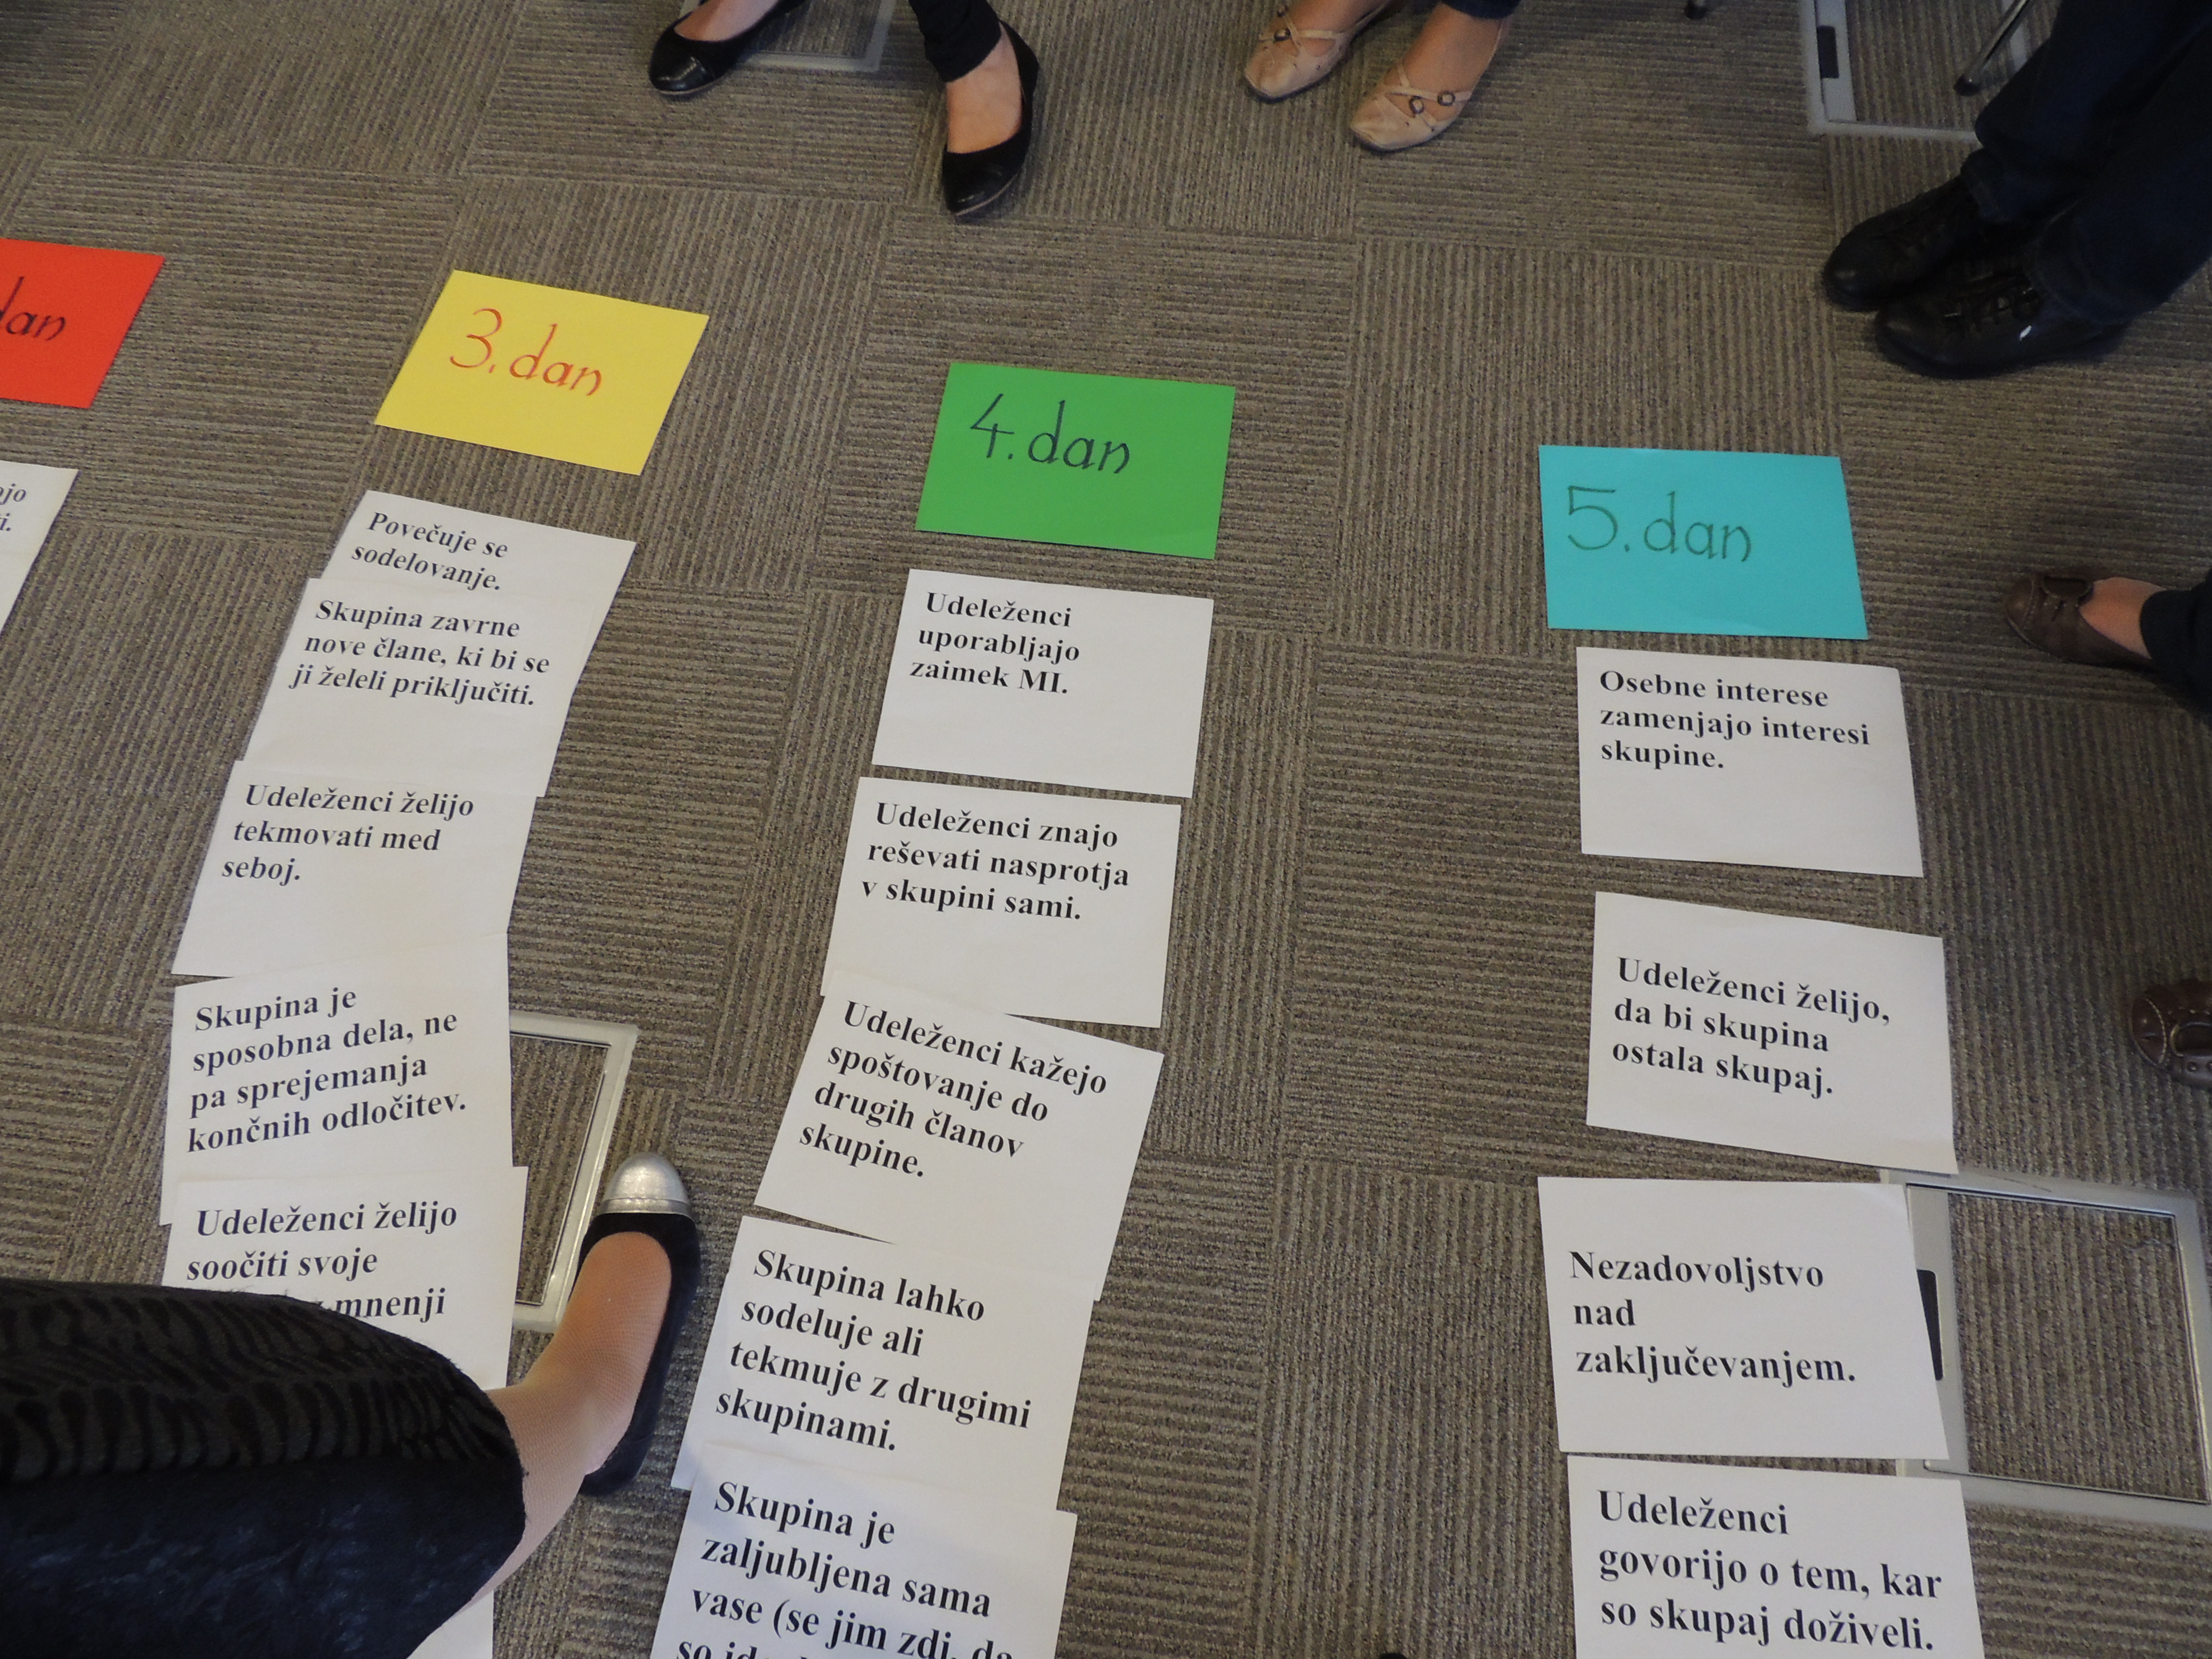 dan
3. dan
Povečuje se
sodelovanje.
Skupina zavrne
nove člane, ki bi se
ji želeli priključiti.
Udeleženci želijo
tekmovati med
seboj.
Skupina je
sposobna dela, ne
pa sprejemanja
končnih odločitev.
Udeleženci želijo
soočiti svoje
mnenji
4. dan
Udeleženci
uporabljajo
zaimek MI.
Udeleženci znajo
reševati nasprotja
v skupini sami.
Udeleženci kažejo
spoštovanje do
drugih članov
skupine.
Skupina lahko
sodeluje ali
tekmuje z drugimi
skupinami.
Skupina je
zaljubljena sama
vase (se jim zdi, da
so
5. dan
Osebne interese
zamenjajo interesi
skupine.
Udeleženci želijo,
da bi skupina
ostala skupaj.
Nezadovoljstvo
nad
zaključevanjem.
Udeleženci
govorijo o tem, kar
so skupaj doživeli.